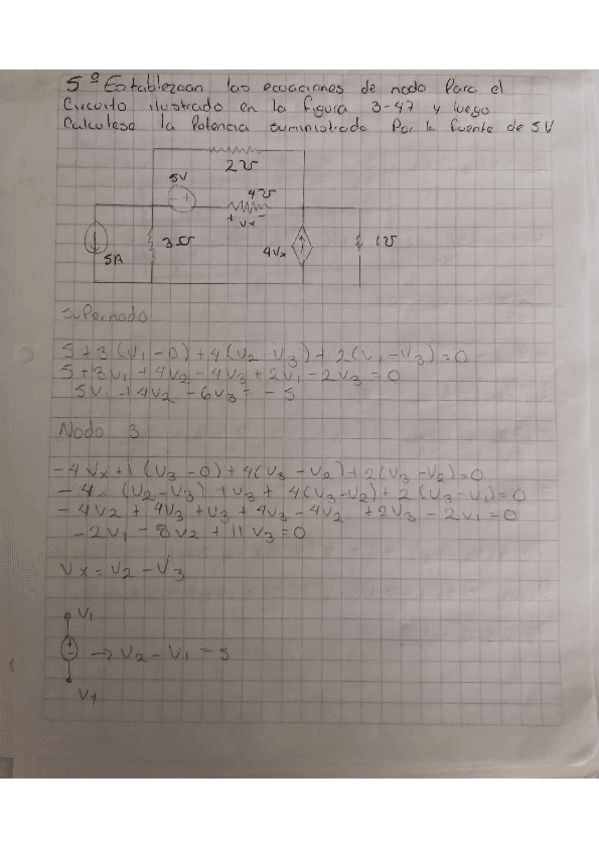 5º Establezcan las ecuaciones de nodo Para el
Circuito ilustrado en la figura 3-47 y luego
Calculese la Potencia suministrada Por la fuente de 5V
2℧
5V
4℧
- +
+ Vx -
3℧
5A
4Vx
1℧
Supernodo
5+3(V1-0)+4(V2-V3)+2(V1-V3)=0
5+3V1+4V2-4V3+2V1-2V3=0
5V1+4V2-6V3=-5
Nodo 3
-4Vx+1(V3-0)+4(V3-V2)+2(V3-V2)=0
-4(V2-V3)+V3+4(V3-V2)+2(V3-V1)=0
-4V2+4V3+V3+4V3-4V2+2V3-2V1=0
-2V1-8V2+11V3=0
Vx=V2-V3
V1
→V2-V1=5
V1